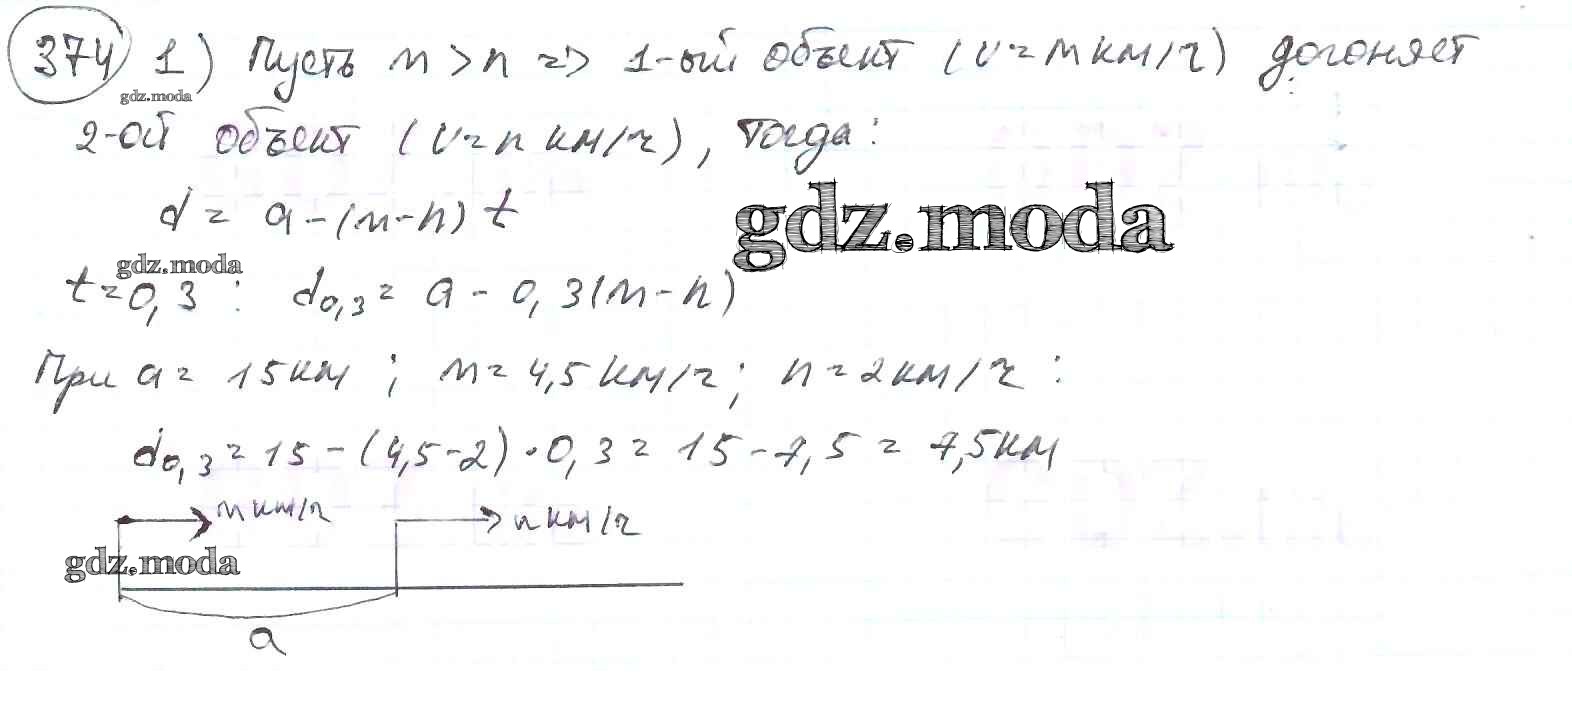 374 1) Пусть m > n => 1-ый объект (v = m км/ч) догоняет
gdz.moda
2-ой объект (v = n км/ч), тогда:
d = a - (m - n) t
gdz.moda
gdz.moda
t = 0,3 : d0,3 = a - 0,3(m - n)
При a = 15 км ; m = 4,5 км/ч ; n = 2 км/ч :
d0,3 = 15 - (4,5 - 2) · 0,3 = 15 - 7,5 = 7,5 км
m км/ч n км/ч
gdz.moda
a